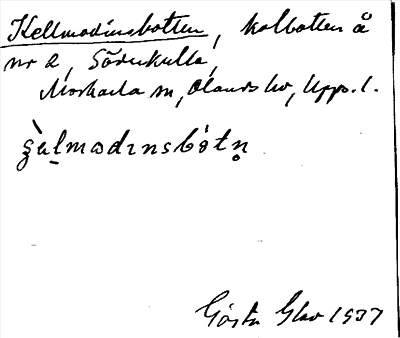 Kellmodinsbotten, kolbotten å
nr 2, Söderkulla,
Morkarla sn, Olands hd, Upps. l.
Gösta Glav 1937